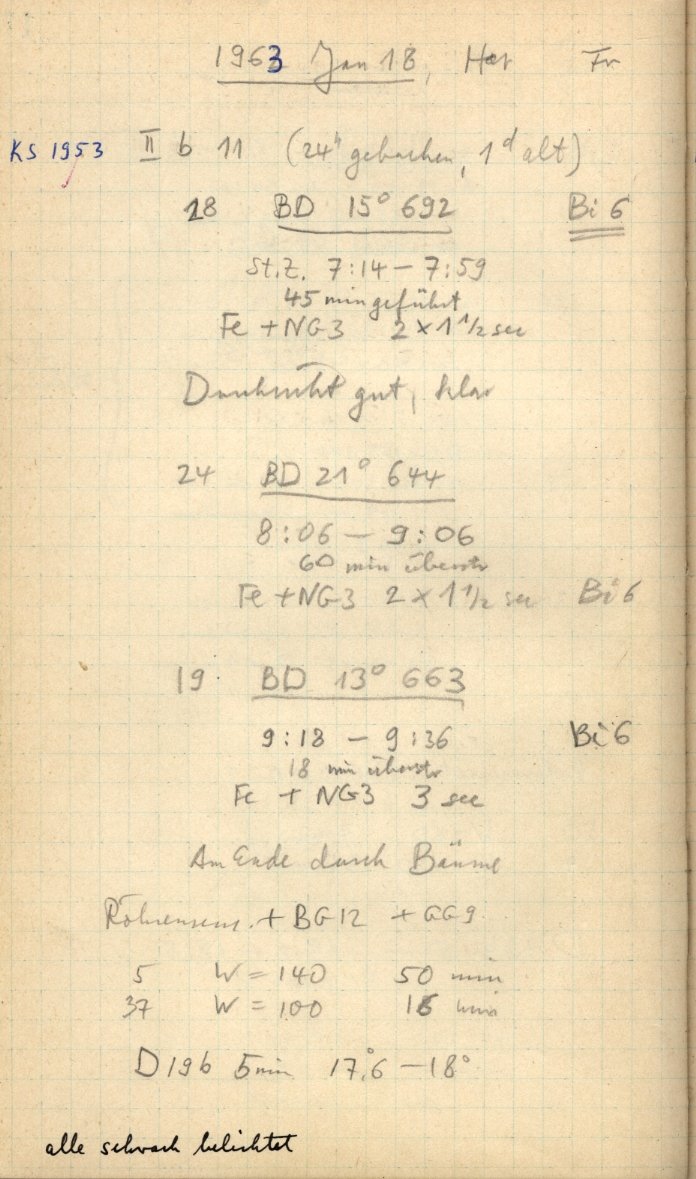 1963 Jan 18, Her Fr
KS 1953 II b 11 (24h gebacken, 1d alt)
18 BD 15° 692 Bi 6
St.Z. 7:14 – 7:59
45 min geführt
Fe + NG3 2 × 1 1/2 sec
Durchsicht gut, klar
24 BD 21° 644
8:06 – 9:06
60 min überstr
Fe + NG3 2 × 1 1/2 sec Bi 6
19 BD 13° 663
9:18 – 9:36 Bi 6
18 min überstr
Fe + NG3 3 sec
Am Ende durch Bäume
Röhrensens. + BG12 + GG9
5 W = 140 50 min
37 W = 100 16 min
D 19b 5 min 17°,6 – 18°
alle schwach belichtet